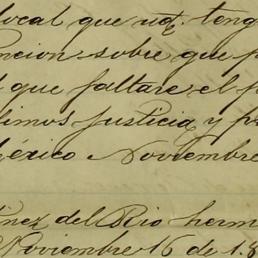 local que ud. teng
ncion sobre que p
l que faltare el p
dimos justicia y pr
éxico Noviembre
inez del Rio herm
Noviembre 16 de 18